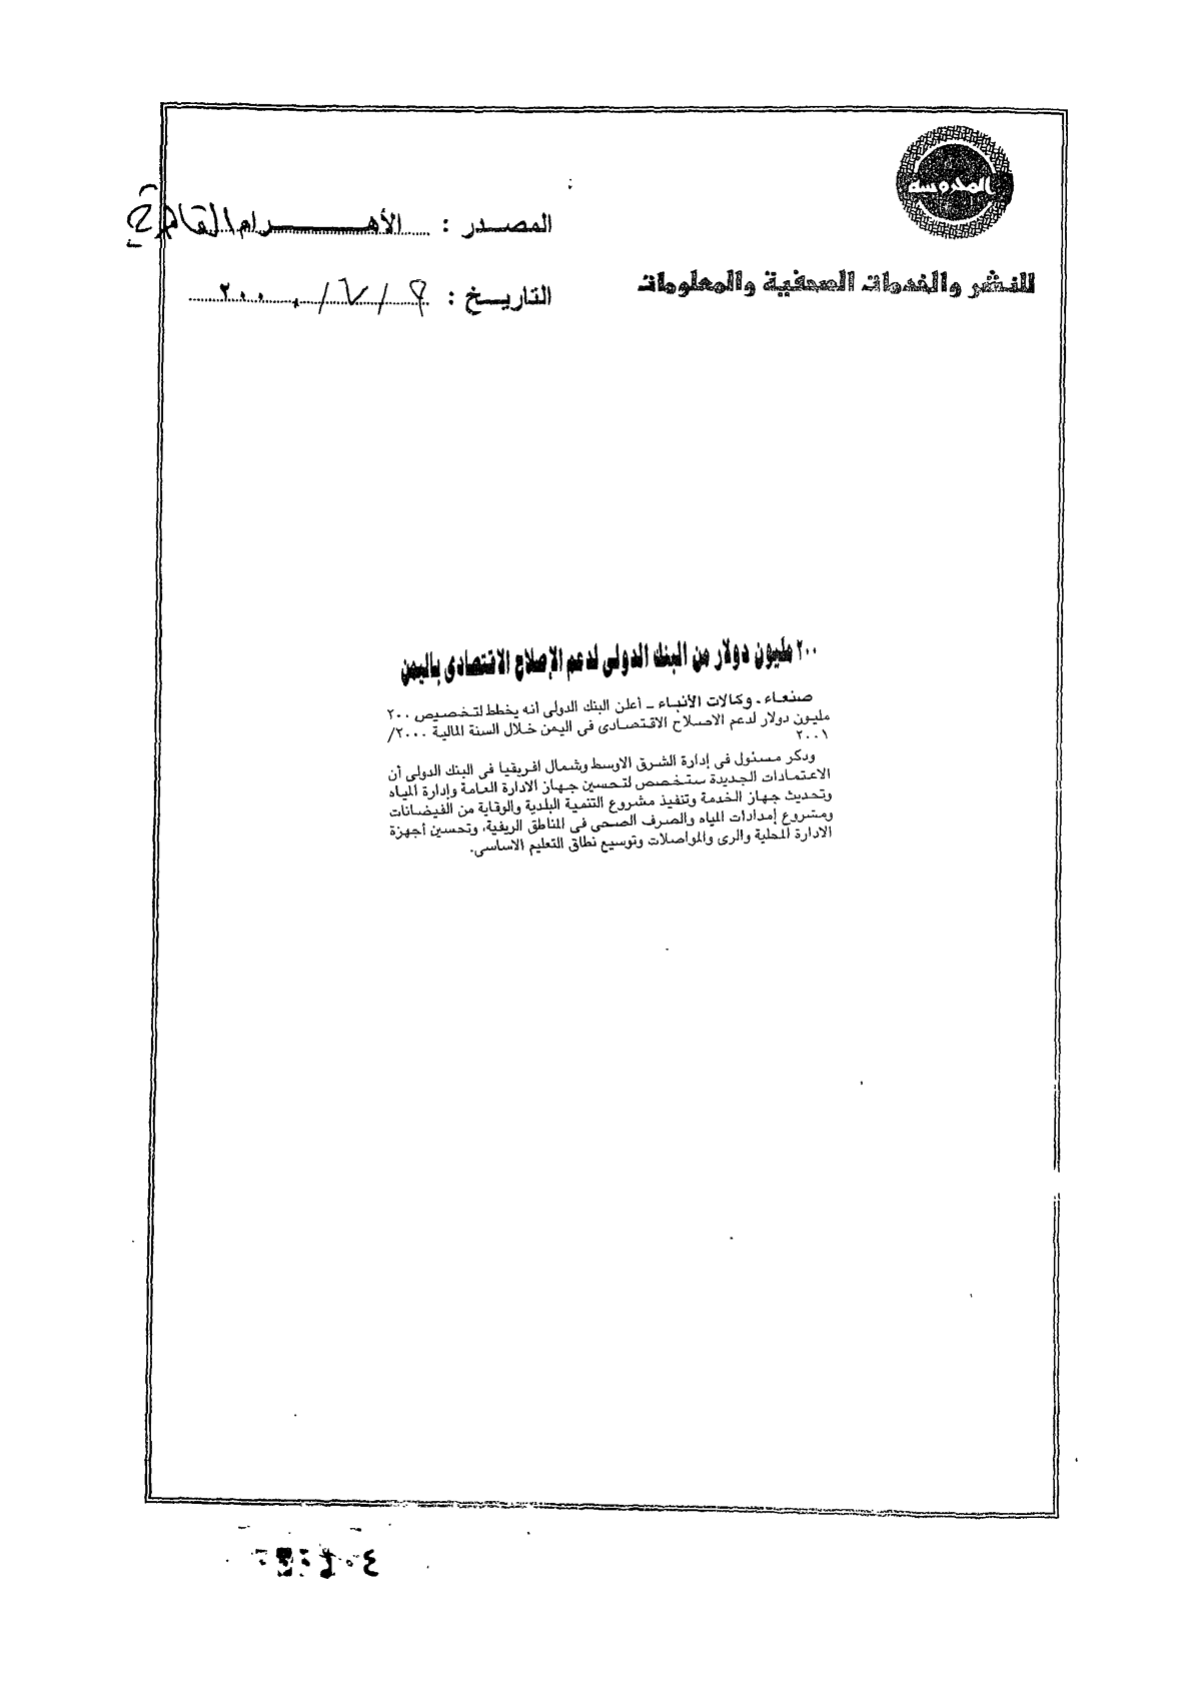 المحروسة
للنشر والخدمات الصحفية والمعلومات
المصدر : الأهرام القاهرة
التاريخ : ٩ / ٧ / ٢٠٠٠
٢٠٠ مليون دولار من البنك الدولى لدعم الإصلاح الاقتصادى باليمن
صنعاء ـ وكالات الأنباء ـ أعلن البنك الدولى أنه يخطط لتخصيص ٢٠٠
مليون دولار لدعم الاصلاح الاقتصادى فى اليمن خلال السنة المالية ٢٠٠٠/
٢٠٠١
وذكر مسئول فى إدارة الشرق الاوسط وشمال افريقيا فى البنك الدولى أن
الاعتمادات الجديدة ستخصص لتحسين جهاز الادارة العامة وإدارة المياه
وتحديث جهاز الخدمة وتنفيذ مشروع التنمية البلدية والوقاية من الفيضانات
ومشروع إمدادات المياه والصرف الصحى فى المناطق الريفية، وتحسين أجهزة
الادارة المحلية والرى والمواصلات وتوسيع نطاق التعليم الاساسى.